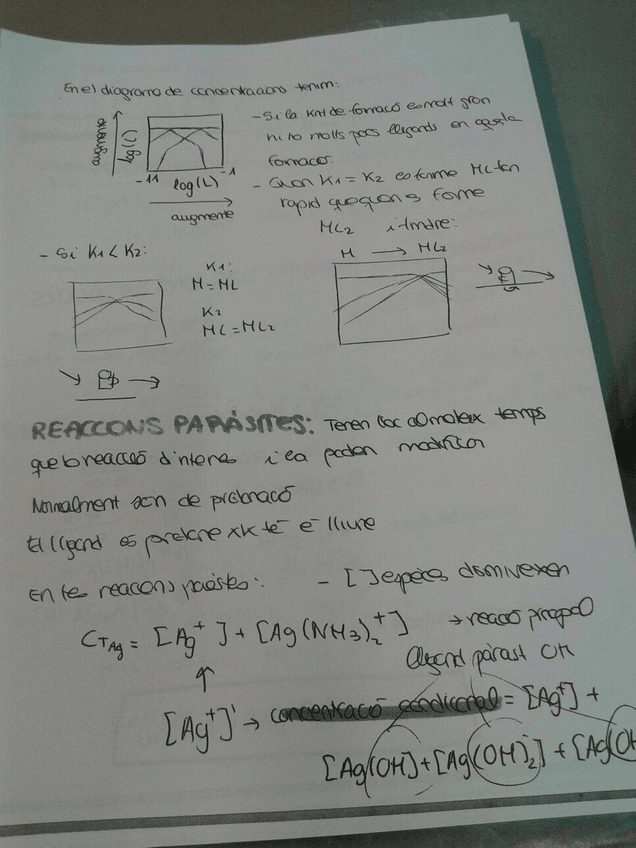 En el diagrama de concentracions tenim:
- Si la Knt de formació es molt gran
ni no molls pocs lligands en aquesta
formació.
augmenta
log(C)
-11 log(L) -1
augmenta
- Quan K1 = K2 es forma ML tan
rapid que quan s forma
ML2 i tindre:
- Si K1 < K2:
K1:
M = ML
K2
ML = ML2
M → ML2
REACCIONS PARÀSITES: Tenen lloc al mateix temps
que la reacció d'interes i la poden modificar
Normalment son de protonació
El lligand es protona xk té e- lliure
En les reaccions paràsites: - [ ] espècies disminueixen
CTAg = [Ag+] + [Ag(NH3)2+] → reacció principal
lligand paràsit OH
[Ag+]' → concentració condicional = [Ag+] +
[Ag(OH] + [Ag(OH)2-] + [Ag(OH